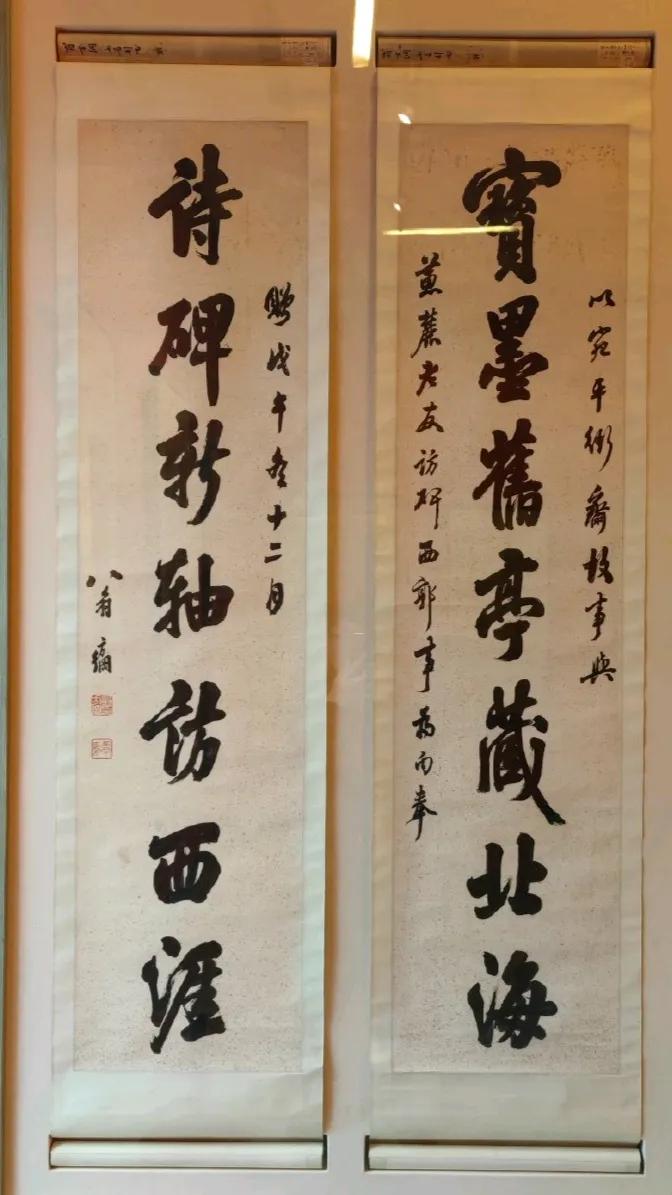 以宛平衙齋故事與
寶墨舊亭藏北海
蕙麓老友訪碑西郭事為句奉
贈戊午冬十二月
詩碑新軸訪西涯
翁方綱